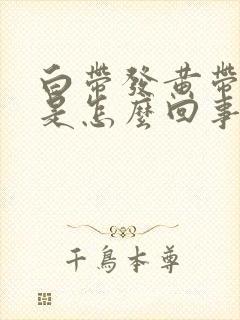 白帶發黃帶
是怎麼回事
千鳥本尊